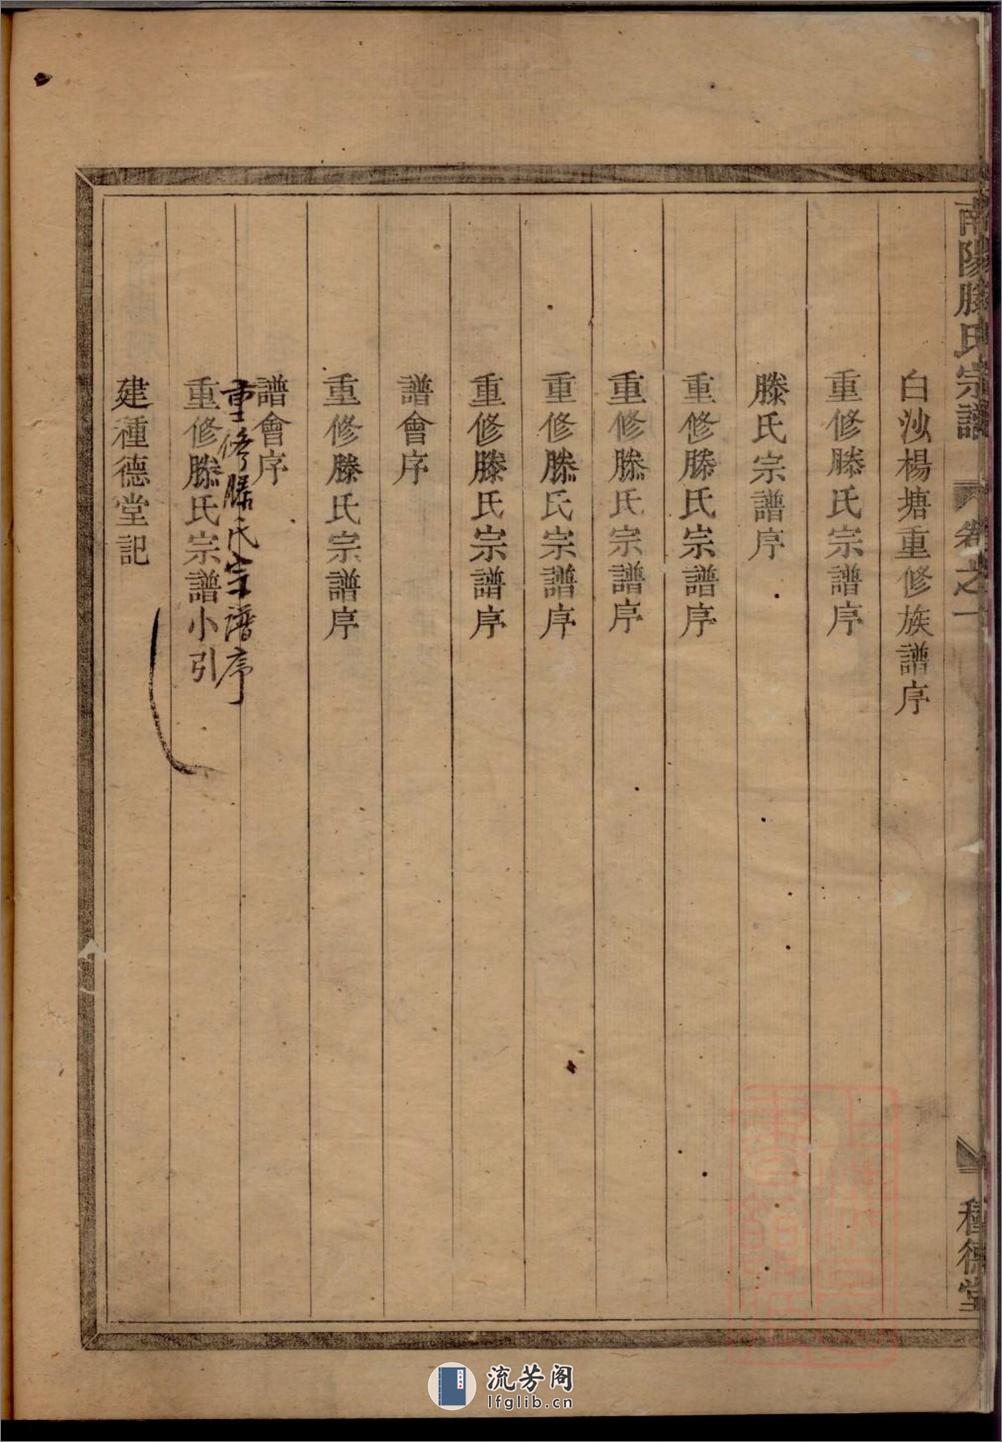 南陽滕氏宗譜 卷之一 種德堂
白沙楊塘重修族譜序
重修滕氏宗譜序
滕氏宗譜序
重修滕氏宗譜序
重修滕氏宗譜序
重修滕氏宗譜序
重修滕氏宗譜序
譜會序
重修滕氏宗譜序
譜會序
重修滕氏宗譜序
重修滕氏宗譜小引
建種德堂記
流芳阁
lfglib.cn